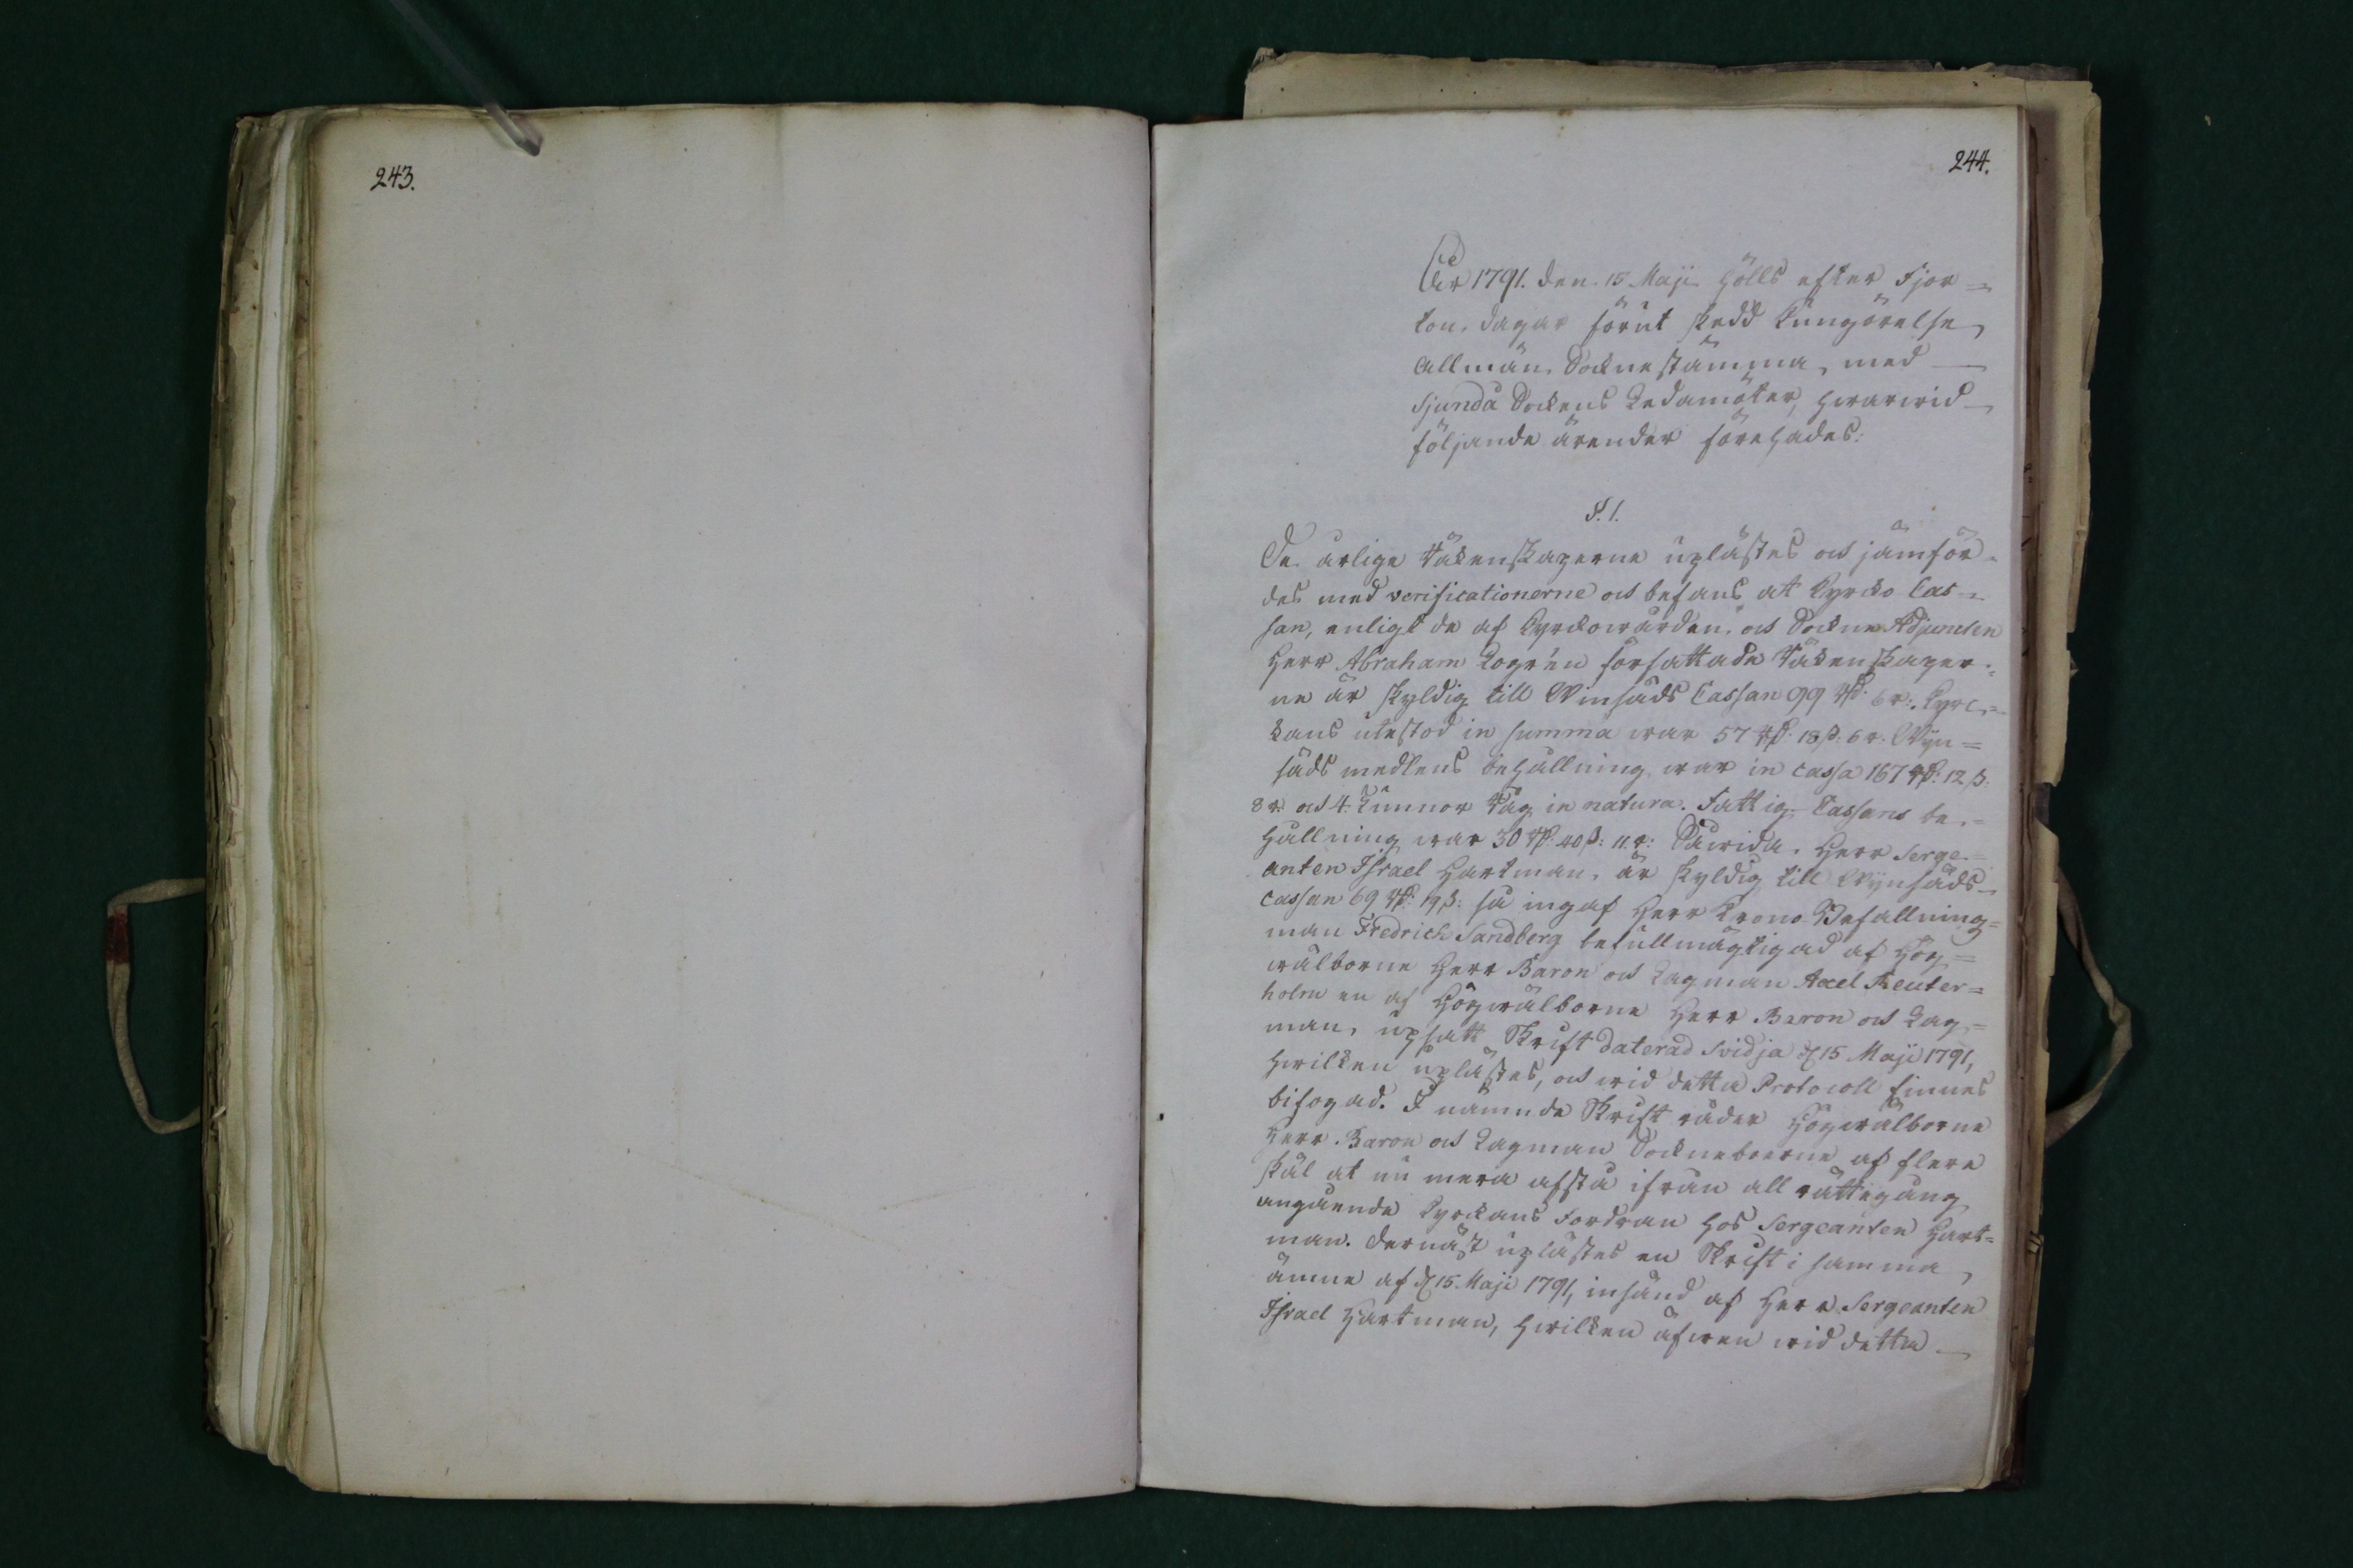 243.
244.
År 1791. den 15 Maji hölls efter Fjor=
ton dagar förut skedd kungörelse
Allmän Socknestämma, med
Sjundå Sockens Ledamöter, hwarwid
följande ärender förehades:
§. 1.
De årlige Räkenskaperne uplästes och jämför-
des med verificationerne och befans at Kyrcko Cas-
san, enligt de af Kyrckowärden och Sockne Adjuncten
Herr Abraham Logrén författade Räkenskaper-
ne är skyldig till Winsäds Cassan 99 Rd. 6 r:. Kyrc=
kans utestod in summa war 57 Rd: 18 ß: 6 r. Wijn=
säds medlens behållning war in cassa 167 Rd: 12 ß.
8 r. och 4. Tunnor Råg in natura. Fattig Cassans be-
hållning war 30 Rd. 40 ß: 11. r: Såwida Herr Serge=
anten Israel Hartman, är skyldig till Wijnsäds
cassan 69 Rd: 19 ß: så ingaf Herr Krono Befallning=
man Fredrich Sandberg befullmägtigad af Hög=
wälborne Herr Baron och Lagman Axel Reuter=
holm en af Högwälborne Herr Baron och Lag=
man, upsatt Skrift daterad Svidja d 15 Maji 1791,
hwilken uplästes, och wid detta Protocoll finnes
bifogad. I nämnde Skrift råder Högwälborne
Herr Baron och Lagman Sockneboerne af flere
skäl at nu mera afstå ifrån all rättegång
angående Kyrckans Fordran hos Sergeanten Hart=
man. Dernäst uplästes en Skrift i samma
ämne af d 15 Maji 1791, insänd af Herr Sergeanten
Israel Hartman, hwilken äfwen wid detta